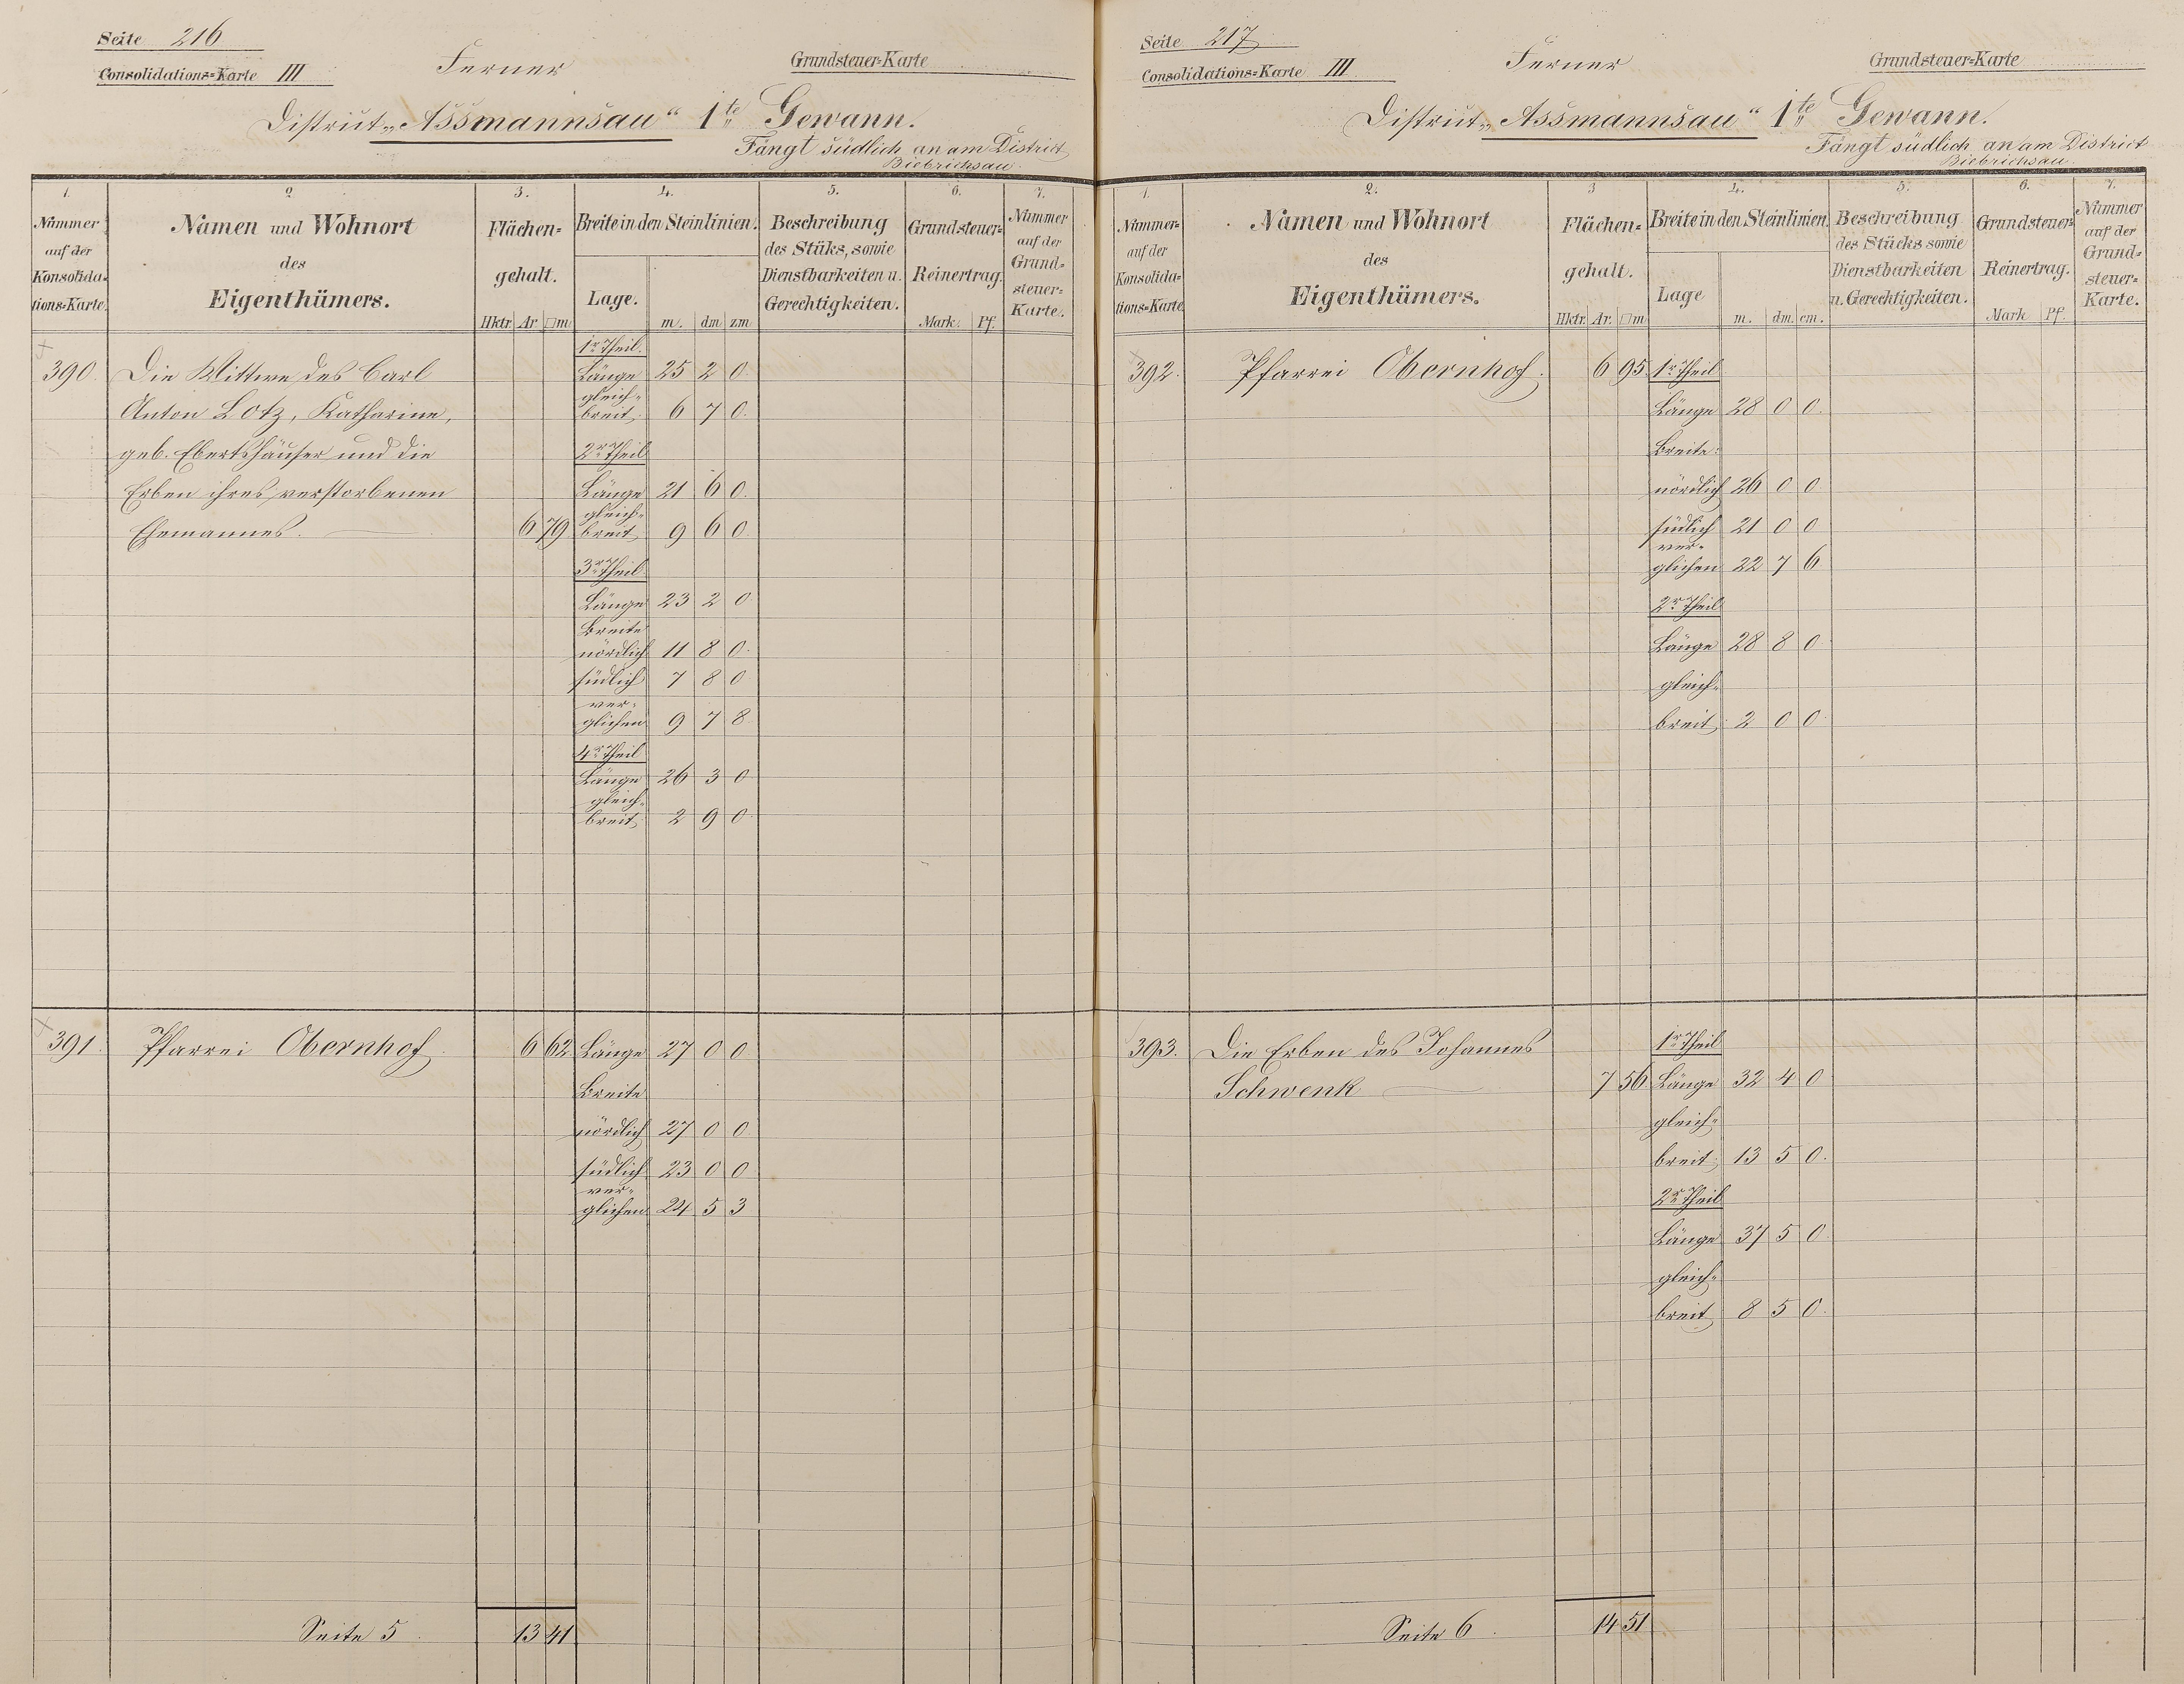 Seite 216
Consolidations-Karte III
Ferner
Grundsteuer-Karte
District „Assmannsau“ 1te Gewann.
Fängt südlich an am District
Biebrichsau.
1. 2. 3. 4. 5. 6. 7.
Nummer auf der Konsolidations-Karte.
Namen und Wohnort des Eigenthümers.
Flächengehalt.
Hktr. Ar □m
Breite in den Steinlinien.
Lage. m. dm zm
Beschreibung des Stüks, sowie Dienstbarkeiten u. Gerechtigkeiten.
Grundsteuer-Reinertrag.
Mark. Pf.
Nummer auf der Grundsteuer-Karte.
1r Theil.
390. Die Wittwe des Carl Länge 25 2 0.
Anton Lotz, Katharine, gleich-breit 6 7 0.
geb. Ebertshäuser und die 2r Theil
Erben ihres verstorbenen Länge 21 6 0.
Ehemannes. 6 79 gleich-breit 9 6 0.
3r Theil
Länge 23 2 0
Breite
nördlich 11 8 0.
südlich 7 8 0
ver-
glichen 9 7 8
4r Theil
Länge 26 3 0
gleich-
breit 2 9 0
391. Pfarrei Obernhof. 6 62 Länge 27 0 0
Breite
nördlich 27 0 0
südlich 23 0 0
ver-
glichen 24 5 3
Seite 5. 13 41
Seite 217
Consolidations-Karte III
Ferner
Grundsteuer-Karte
District „Assmannsau“ 1te Gewann.
Fängt südlich an am District
Biebrichsau.
1. 2. 3 4. 5. 6. 7.
Nummer auf der Konsolidations-Karte
Namen und Wohnort des Eigenthümers.
Flächengehalt.
Hktr. Ar. □m
Breite in den Steinlinien.
Lage m. dm. cm.
Beschreibung des Stücks sowie Dienstbarkeiten u. Gerechtigkeiten.
Grundsteuer-Reinertrag.
Mark Pf.
Nummer auf der Grundsteuer-Karte.
392. Pfarrei Obernhof. 6 95 1r Theil
Länge 28 0 0.
Breite:
nördlich 26 0 0
südlich 21 0 0
ver-
glichen 22 7 6
2r Theil
Länge 28 8 0
gleich-
breit 2 0 0
393. Die Erben des Johannes 1r Theil
Schwenk 7 56 Länge 32 4 0
gleich-
breit 13 5 0.
2r Theil
Länge 37 5 0
gleich-
breit 8 5 0.
Seite 6. 14 51